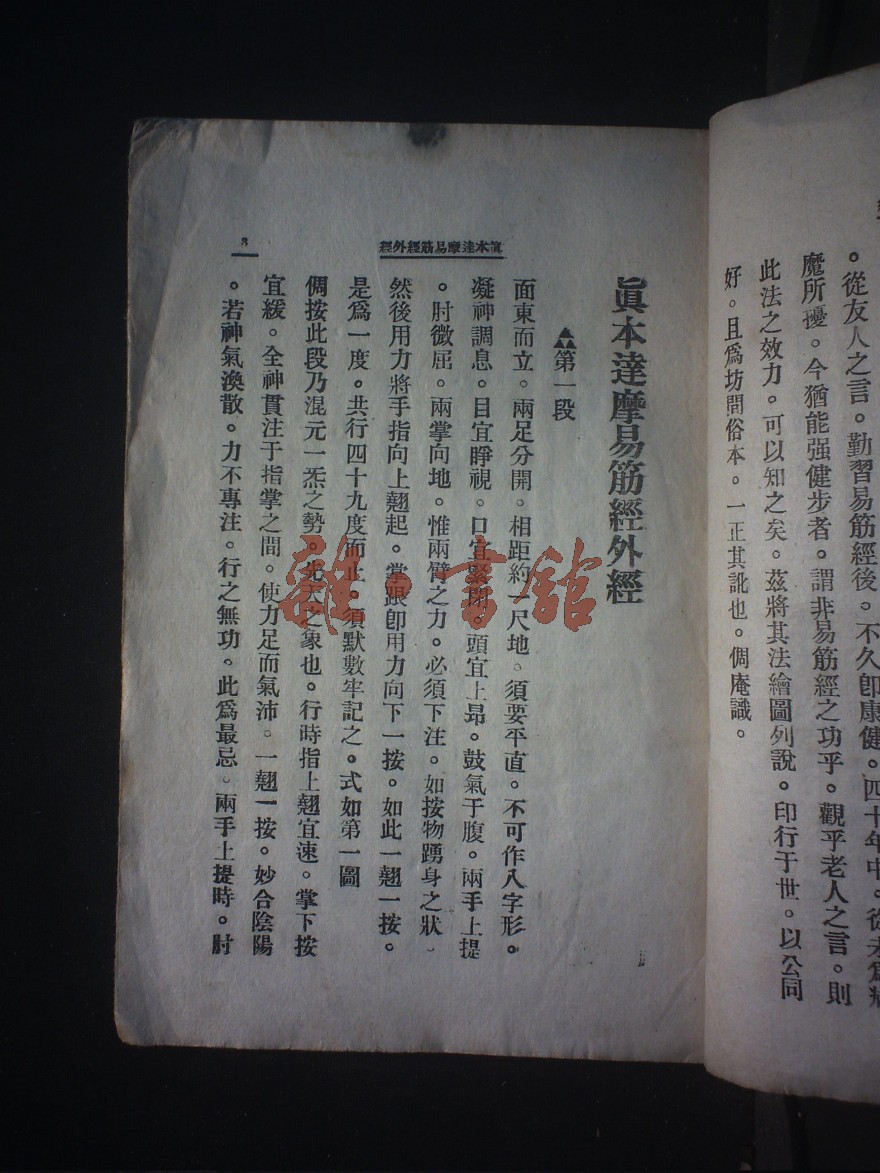 。從友人之言。勤習易筋經後。不久卽康健。四十年中。從未爲病
魔所擾。今猶能强健步者。謂非易筋經之功乎。觀乎老人之言。則
此法之效力。可以知之矣。茲將其法繪圖列說。印行于世。以公同
好。且爲坊間俗本。一正其訛也。倜庵識。
眞本達摩易筋經外經
第一段
面東而立。兩足分開。相距約一尺地。須要平直。不可作八字形。
凝神調息。目宜睜視。口宜緊閉。頭宜上昂。鼓氣于腹。兩手上提
。肘微屈。兩掌向地。惟兩臂之力。必須下注。如按物踴身之狀。
然後用力將手指向上翹起。掌跟卽用力向下一按。如此一翹一按。
是爲一度。共行四十九度而止。須默數牢記之。式如第一圖
倜按此段乃混元一炁之勢。先天之象也。行時指上翹宜速。掌下按
宜緩。全神貫注于指掌之間。使力足而氣沛。一翹一按。妙合陰陽
。若神氣渙散。力不專注。行之無功。此爲最忌。兩手上提時。肘
眞本達摩易筋經外經
3
雜·書館